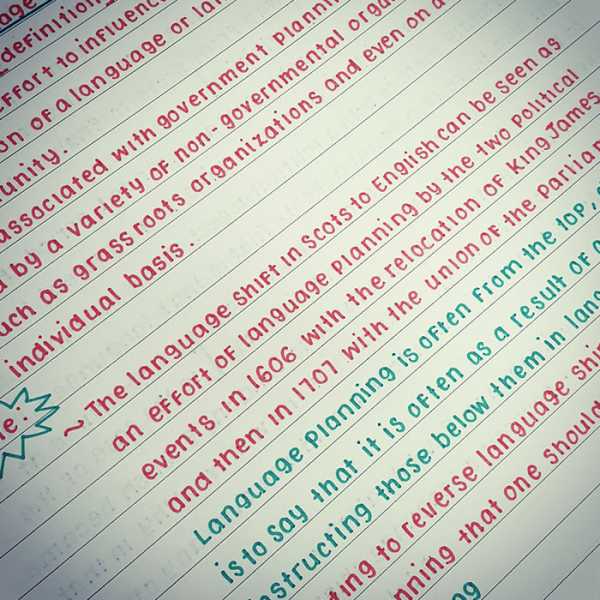 age
definition
effort to influence
on of a language or lan
unity.
associated with government plannin
d by a variety of non-governmental orga
uch as grass roots organizations and even on a
individual basis.
~ The language shift in Scots to English can be seen as
an effort of language planning by the two political
events in 1606 with the relocation of King James
and then in 1707 with the union of the parlia
Language planning is often from the top,
is to say that it is often as a result of
nstructing those below them in lang
ting to reverse language shi
nning that one should